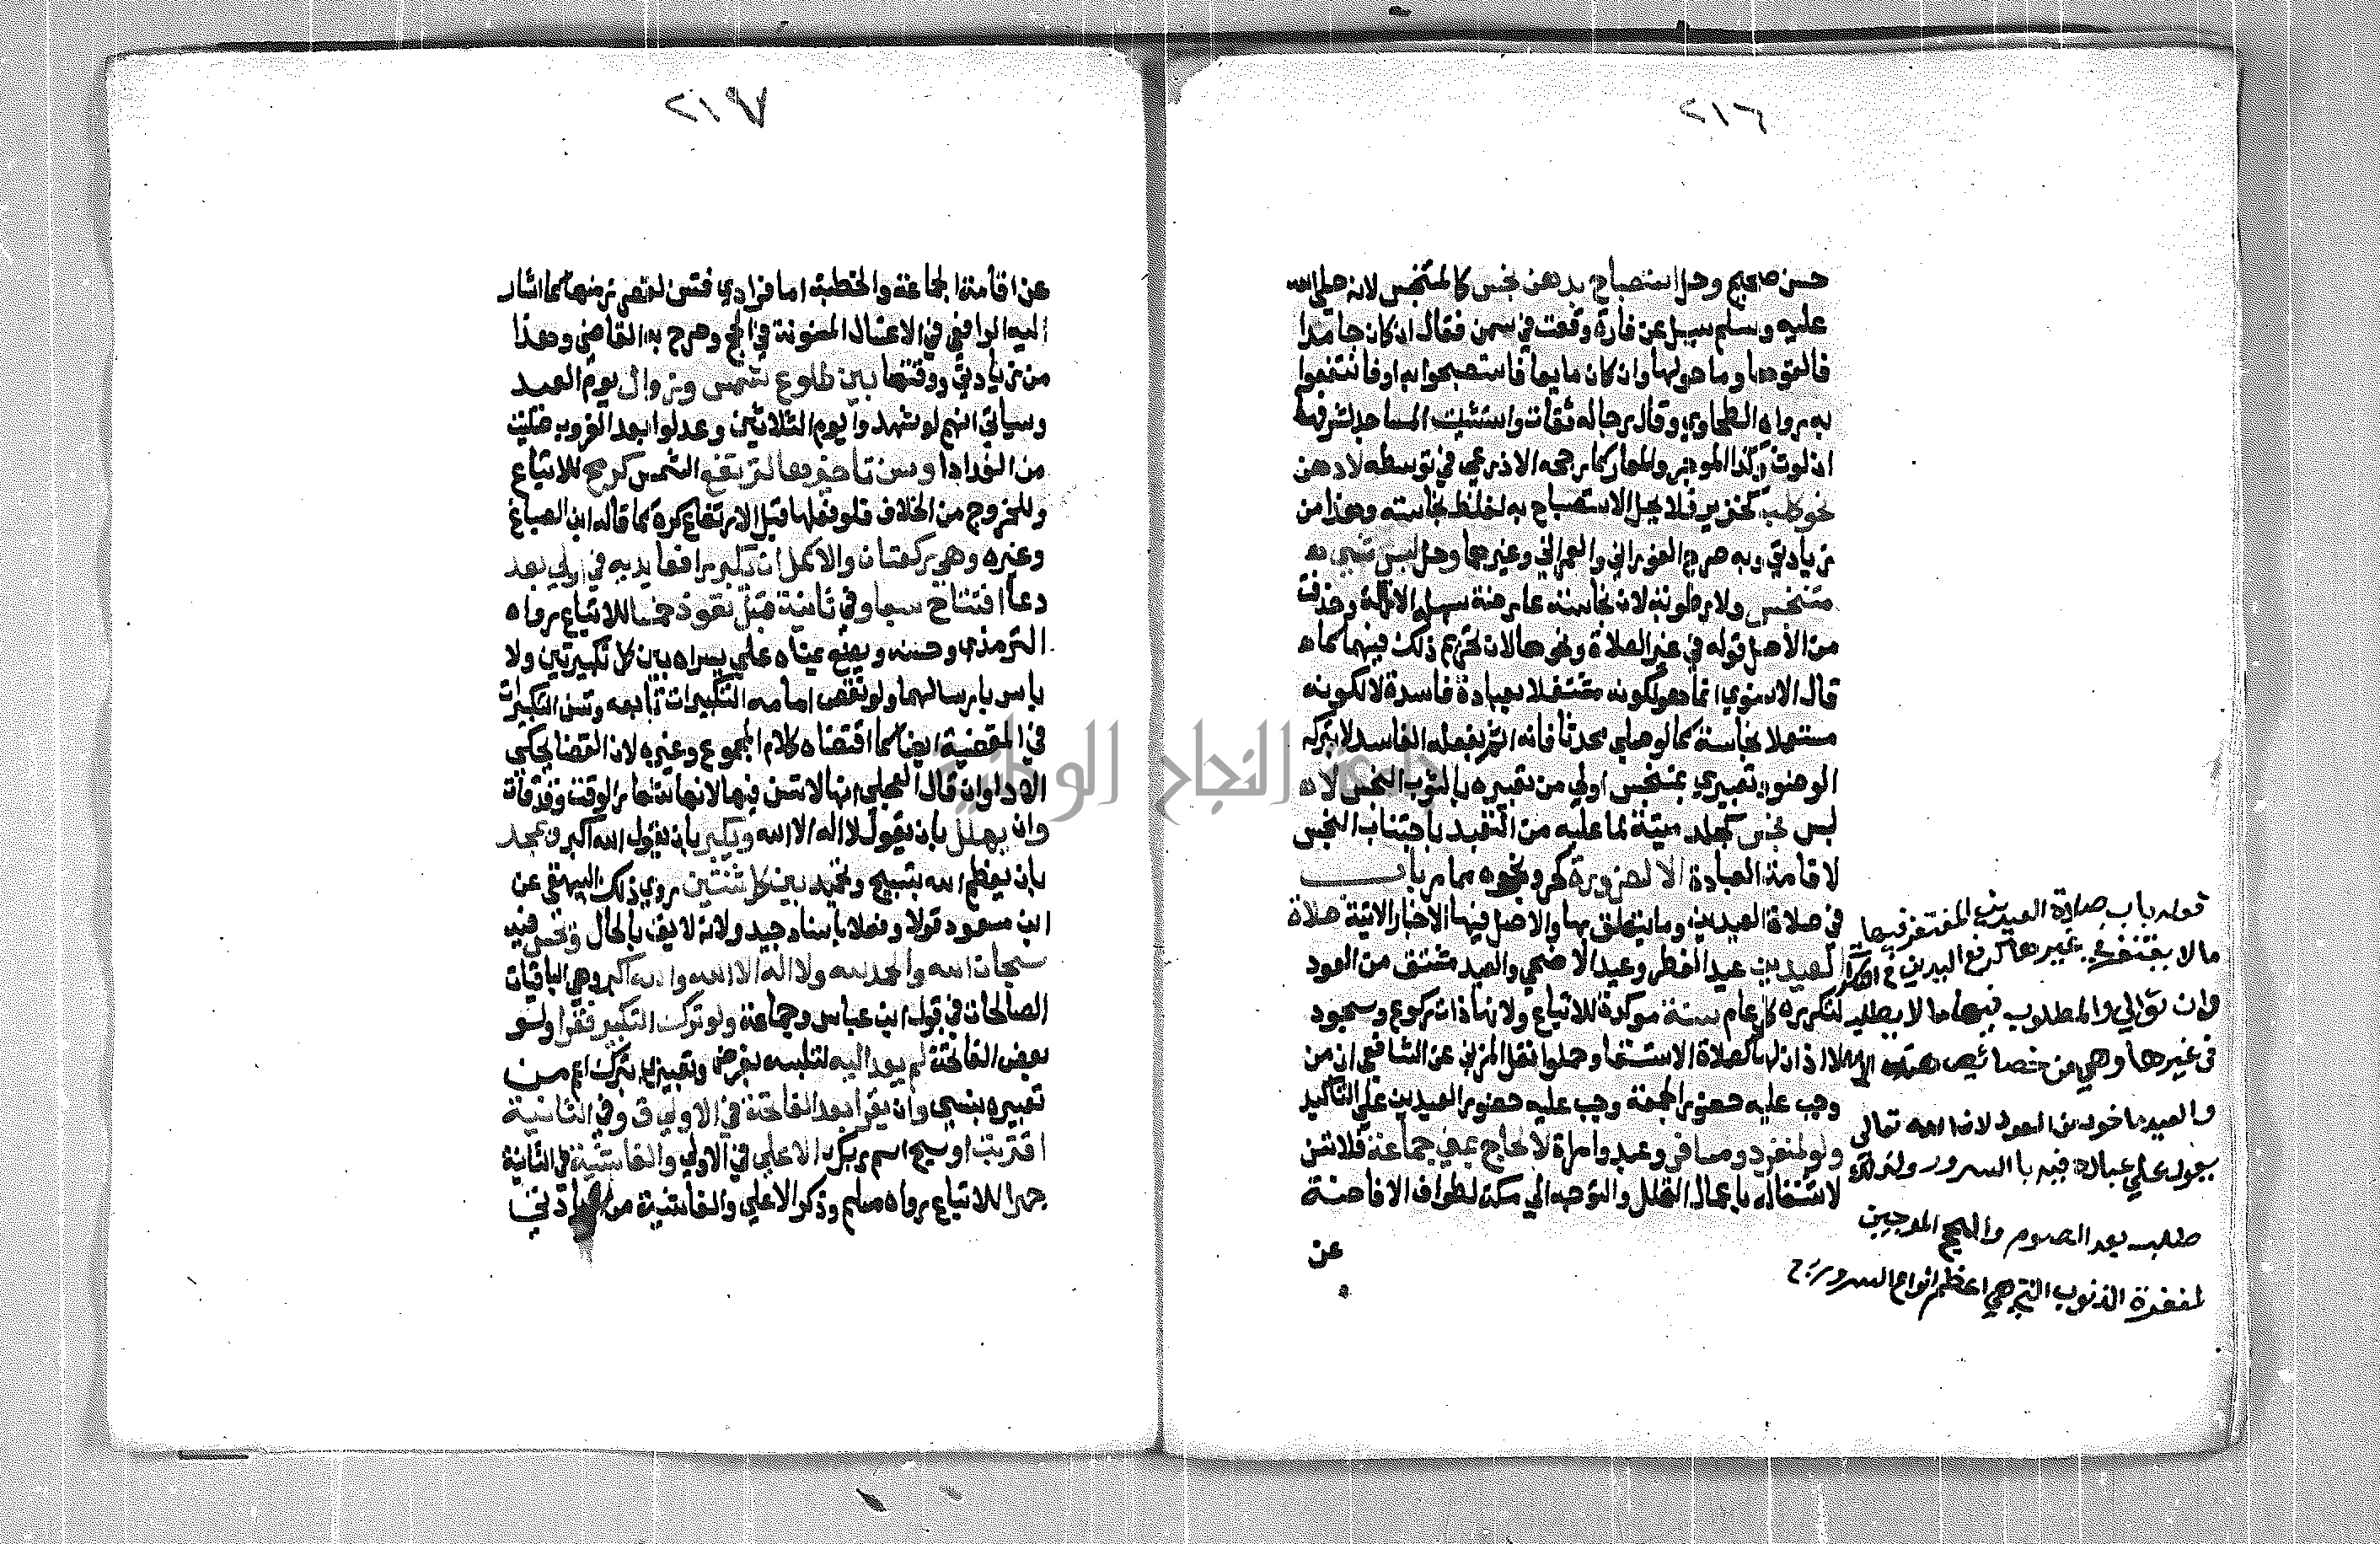 ٢١٦
حسن صحيح وحل استصباح بدهن نجس كالمتنجس لانه صلي الله
عليه وسلم سيل عن فارة وقعت في سمن فقال ان كان جامدا
فالقوها وما حولها وان كان مايعا فاستصبحوا به او فانتفعوا
به رواه الطحاوي وقال رجاله ثقات واستثنيت المساجد لشرفها
ان لوث وكذا الموجر والمعار كما رجحه الاذرعي في توسطه لا دهن
نحو كلب كخنزير فلا يحل الاستصباح به لغلظ نجاسته وهذا من
زيادتي وبه صرح الفوراني والعمراني وغيرهما وحل لبس شي
متنجس ولا رطوبة لان نجاسته عارضة سهلة الازالة وحذفت
من الاصل قوله في غير الصلاة ونحوها لان تحريم ذلك فيهما كما
قال الاسنوي انما هو لكونه مشتغلا بعبادة فاسدة لا لكونه
مستعملا نجاسة كما لو صلي محدثا فانه اثم بفعله الفاسد لا بتركه
الوضوء وتعبيري بمتنجس اولي من تعبيره بالثوب النجس لا
لبس نجس كجلد ميتة لما عليه من التعبد باجتناب النجس
لاقامة العبادة الا لضرورة كحر ونحوه مما مر باب
في صلاة العيدين وما يتعلق بها والاصل فيها الاخبار الاتية صلاة
العيدين عيد الفطر وعيد الاضحي والعيد مشتق من العود
لتكرره كل عام سنة موكدة للاتباع ولانها ذات ركوع وسجود
لا اذان لها كصلاة الاستسقا وحملوا نقل المزني عن الشافعي ان من
وجب عليه حضور الجمعة وجب عليه حضور العيدين علي التاكيد
ولو لمنفرد ومسافر وعبد وامراة لا لحاج بمني جماعة فلا تسن
لاشتغاله باعمال التحلل والتوجه الي مكة لطواف الافاضة
عن
قوله باب صلاة العيدين المغتفر فيها
ما لا يغتفر في غيرها كرفع اليدين في التكبير
وان توالي والمطلوب فيها ما لا يطلب
في غيرها وهي من خصائص هذه الامة
والعيد ماخوذ من العود لان الله تعالي
يعود علي عباده فيه بالسرور ولذلك
طلب بعد الصوم والحج الموجبين
لمغفرة الذنوب التي هي اعظم انواع السرور ح
٢١٧
عن اقامة الجماعة والخطبة اما فرادي فتسن له لقصر زمنها كما اشار
اليه الرافعي في الاغسال المسنونة في الحج وصرح به القاضي وهذا
من زيادتي ووقتها بين طلوع شمس وزوال يوم العيد
وسياتي انهم لو شهدوا يوم الثلاثين وعدلوا بعد الغروب صليت
من الغد ادا وسن تاخيرها لترتفع الشمس كرمح للاتباع
وللخروج من الخلاف فلو فعلها قبل الارتفاع كره كما قاله ابن الصباغ
وغيره وهي ركعتان والاكمل ان يكبر رافعا يديه في اولي بعد
دعا افتتاح سبعا وفي ثانية قبل تعوذ خمسا للاتباع رواه
الترمذي وحسنه ويضع يمناه علي يسراه بين كل تكبيرتين ولا
باس بارسالهما ولو نقص امامه التكبيرات تابعه وتسن التكبيرات
في المقضية ايضا كما اقتضاه كلام المجموع وغيره لان القضا يحكي
الادا وان قال العجلي انها لا تسن فيها لانها شعار الوقت وقد فات
وان يهلل بان يقول لا اله الا الله ويكبر بان يقول الله اكبر ويمجد
بان يعظم الله بتسبيح وتحميد بين كل ثنتين روي ذلك البيهقي عن
ابن مسعود قولا وفعلا باسناد جيد ولانه لايق بالحال وتحسن فيه
سبحان الله والحمد لله ولا اله الا الله والله اكبر وهي الباقيات
الصالحات في قول ابن عباس وجماعة ولو ترك التكبير فقرا ولو
بعض الفاتحة لم يعد اليه لتلبسه بفرض وتعبيري بترك اعم من
تعبيره بنسي وان يقرا بعد الفاتحة في الاولي ق وفي الثانية
اقتربت او سبح اسم ربك الاعلي في الاولي والغاشية في الثانية
جهرا للاتباع رواه مسلم وذكر الاعلي والغاشية من زيادتي
جامعة النجاح الوطنية